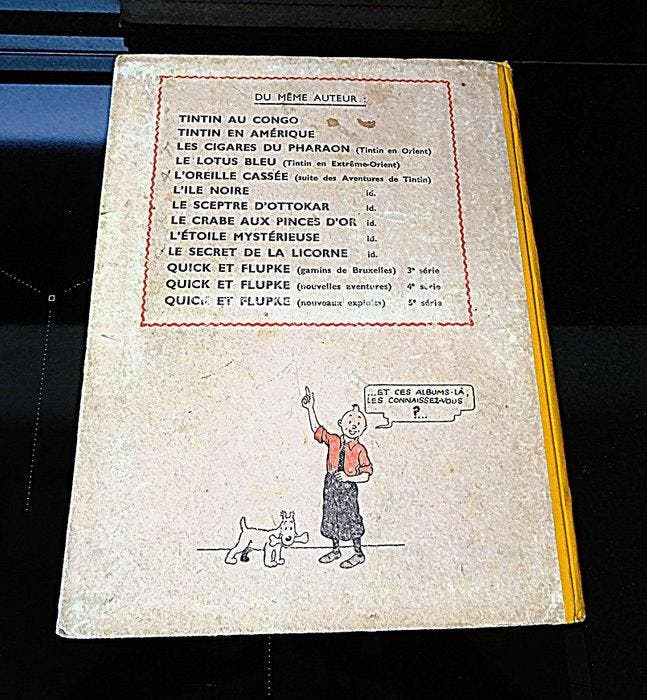 DU MÊME AUTEUR :
TINTIN AU CONGO
TINTIN EN AMÉRIQUE
LES CIGARES DU PHARAON (Tintin en Orient)
LE LOTUS BLEU (Tintin en Extrême-Orient)
L'OREILLE CASSÉE (suite des Aventures de Tintin)
L'ILE NOIRE id.
LE SCEPTRE D'OTTOKAR id.
LE CRABE AUX PINCES D'OR id.
L'ÉTOILE MYSTÉRIEUSE id.
LE SECRET DE LA LICORNE id.
QUICK ET FLUPKE (gamins de Bruxelles) 3e série
QUICK ET FLUPKE (nouvelles aventures) 4e série
QUICK ET FLUPKE (nouveaux exploits) 5e série
...ET CES ALBUMS-LÀ,
LES CONNAISSEZ-VOUS
?...